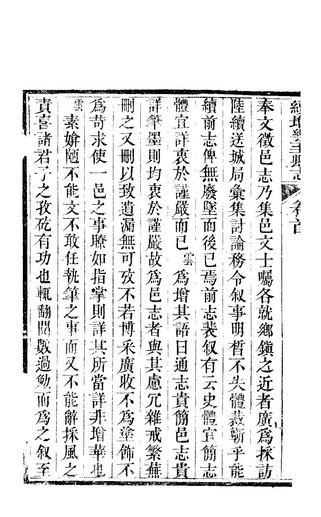 奉文徵邑志乃集邑文士囑各就鄉鎮之近者廣為採訪
陸續送城局彙集討論務令叙事明晳不失體裁嶄乎能
續前志俾無廢墜而後已焉前志裴叙有云史體宜簡志
體宜詳衷於謹嚴而已雲為增其語曰通志貴簡邑志貴
詳筆墨則均衷於謹嚴故為邑志者與其慮冗雜戒繁蕪
刪之又刪以致遺漏無可攷不若博采廣收不為塗飾不
為苛求使一邑之事瞭如指掌則詳其所當詳非增華也
雲素媕陋不能文不敢任執筆之事而又不能辭採風之
責喜諸君子之孜矻有功也輒翻閱數過勉而為之叙至